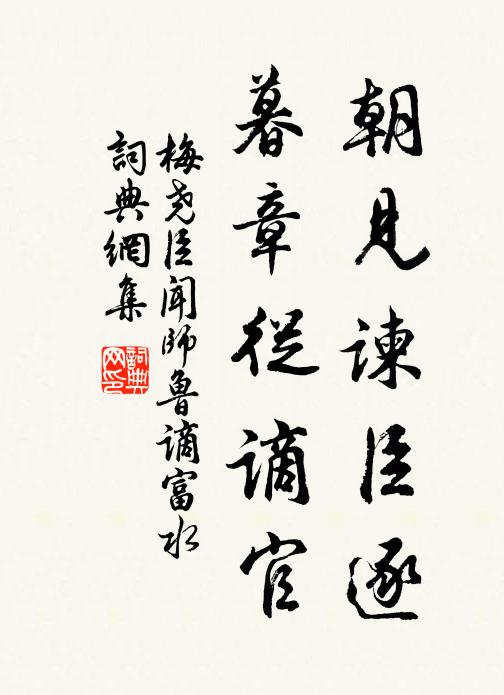 朝見諫臣逐
暮章從謫官
梅堯臣聞師魯謫富水
詞典網集
詞典网印